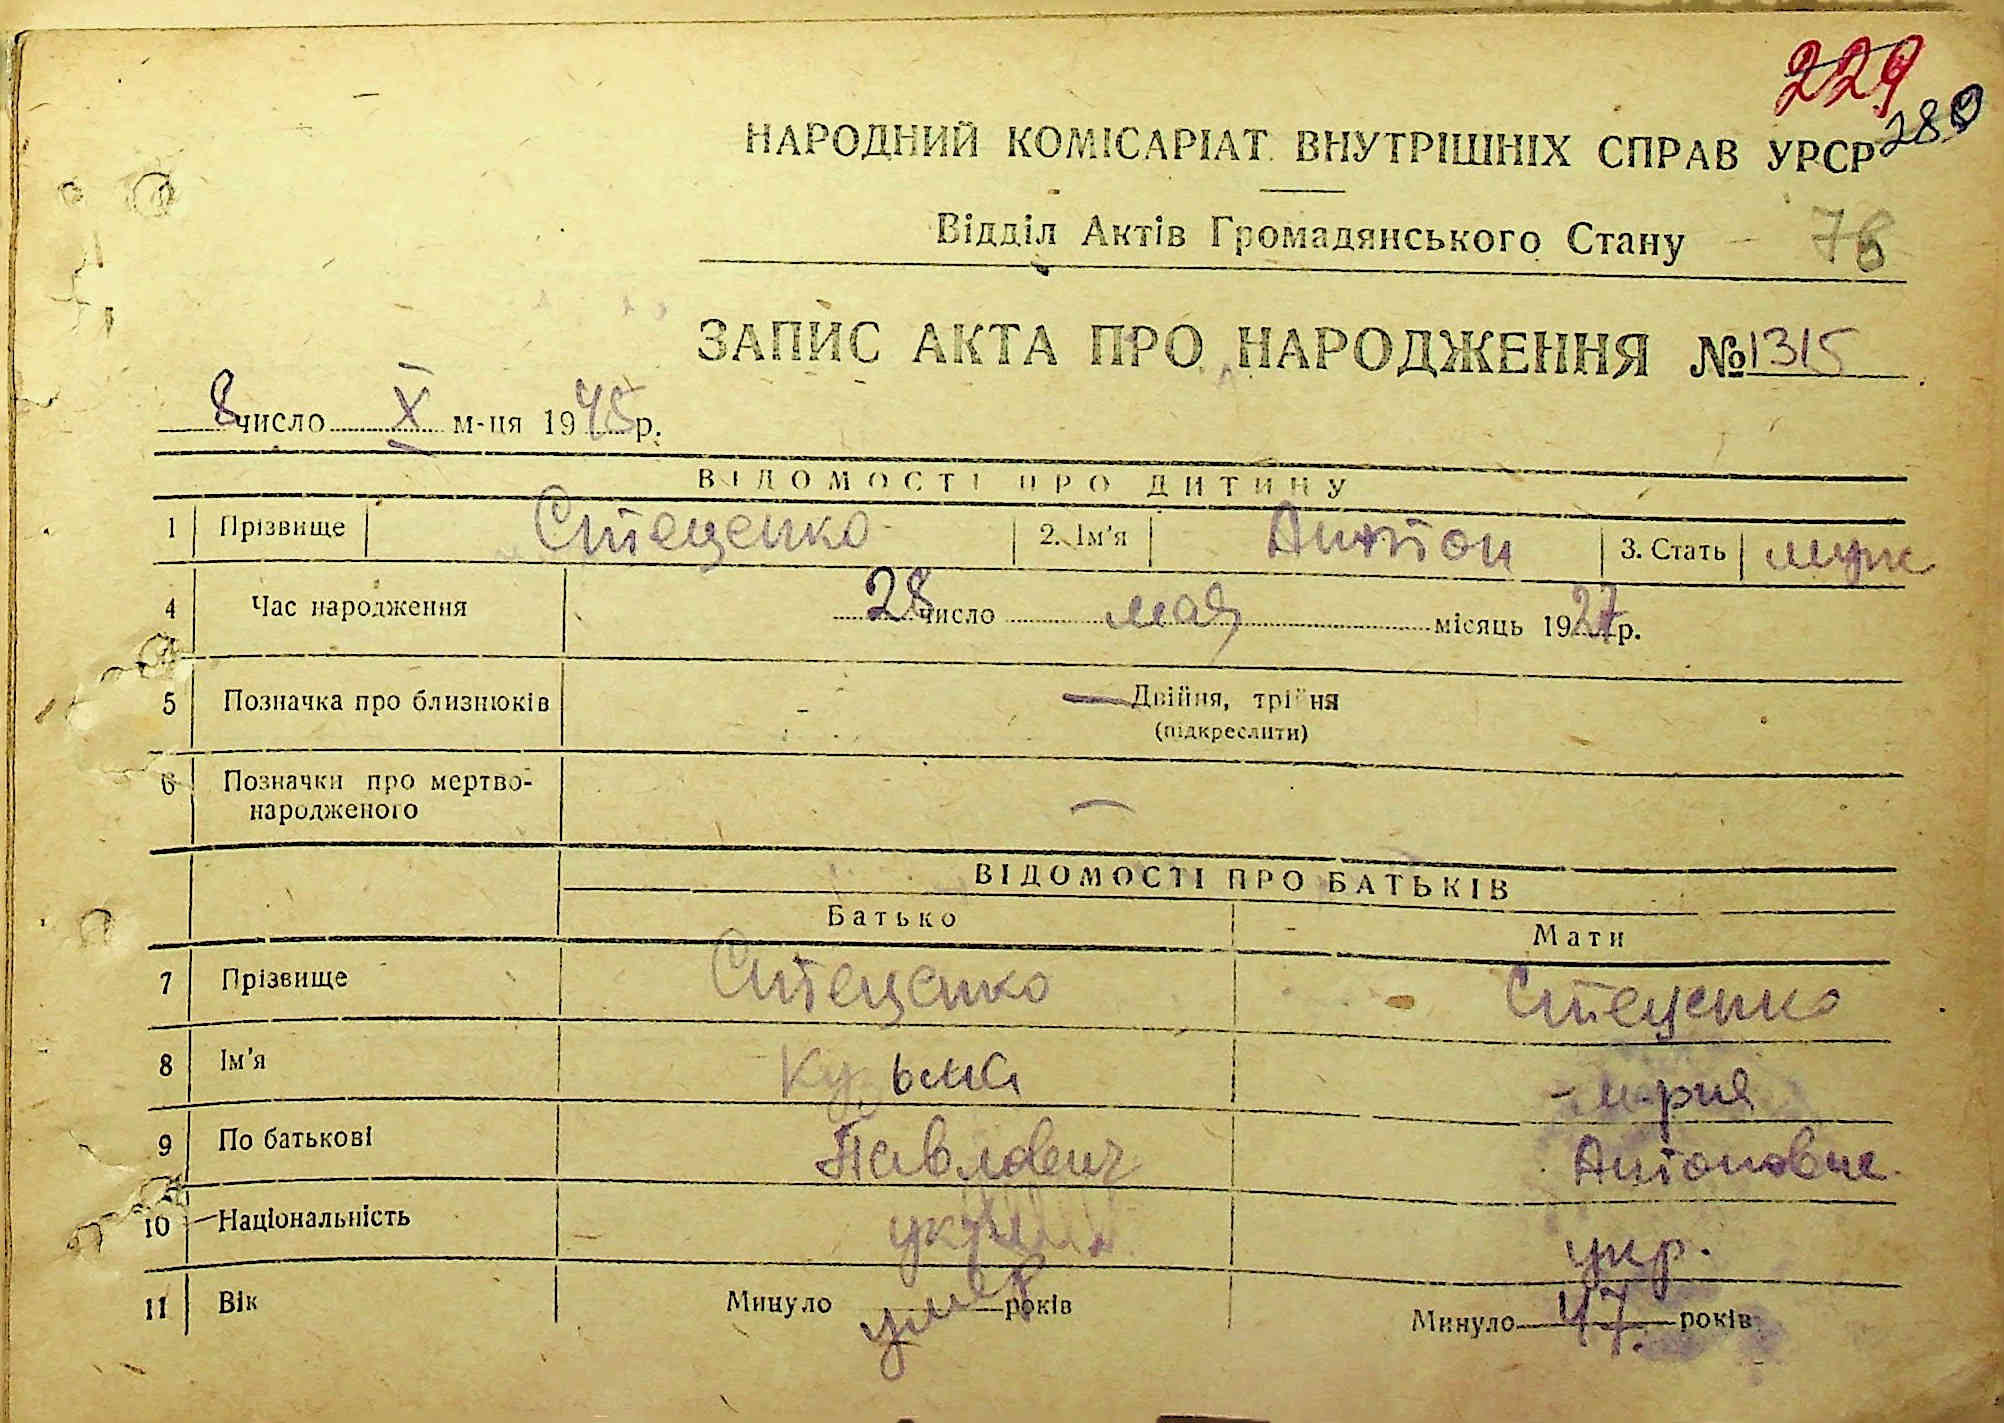 229
289
НАРОДНИЙ КОМІСАРІАТ ВНУТРІШНІХ СПРАВ УРСР
Відділ Актів Громадянського Стану
78
ЗАПИС АКТА ПРО НАРОДЖЕННЯ №1315
8 число X м-ця 1945 р.
ВІДОМОСТІ ПРО ДИТИНУ
1 Прізвище Стеценко 2. Ім'я Антон 3. Стать муж
4 Час народження 28 число мая місяць 1927 р.
5 Позначка про близнюків — Двійня, трійня
(підкреслити)
6 Позначки про мертво-
народженого —
ВІДОМОСТІ ПРО БАТЬКІВ
Батько Мати
7 Прізвище Стеценко Стеценко
8 Ім'я Кузьма Мария
9 По батькові Павлович Антоновне
10 Національність укр укр.
11 Вік Минуло умер років Минуло 47 років